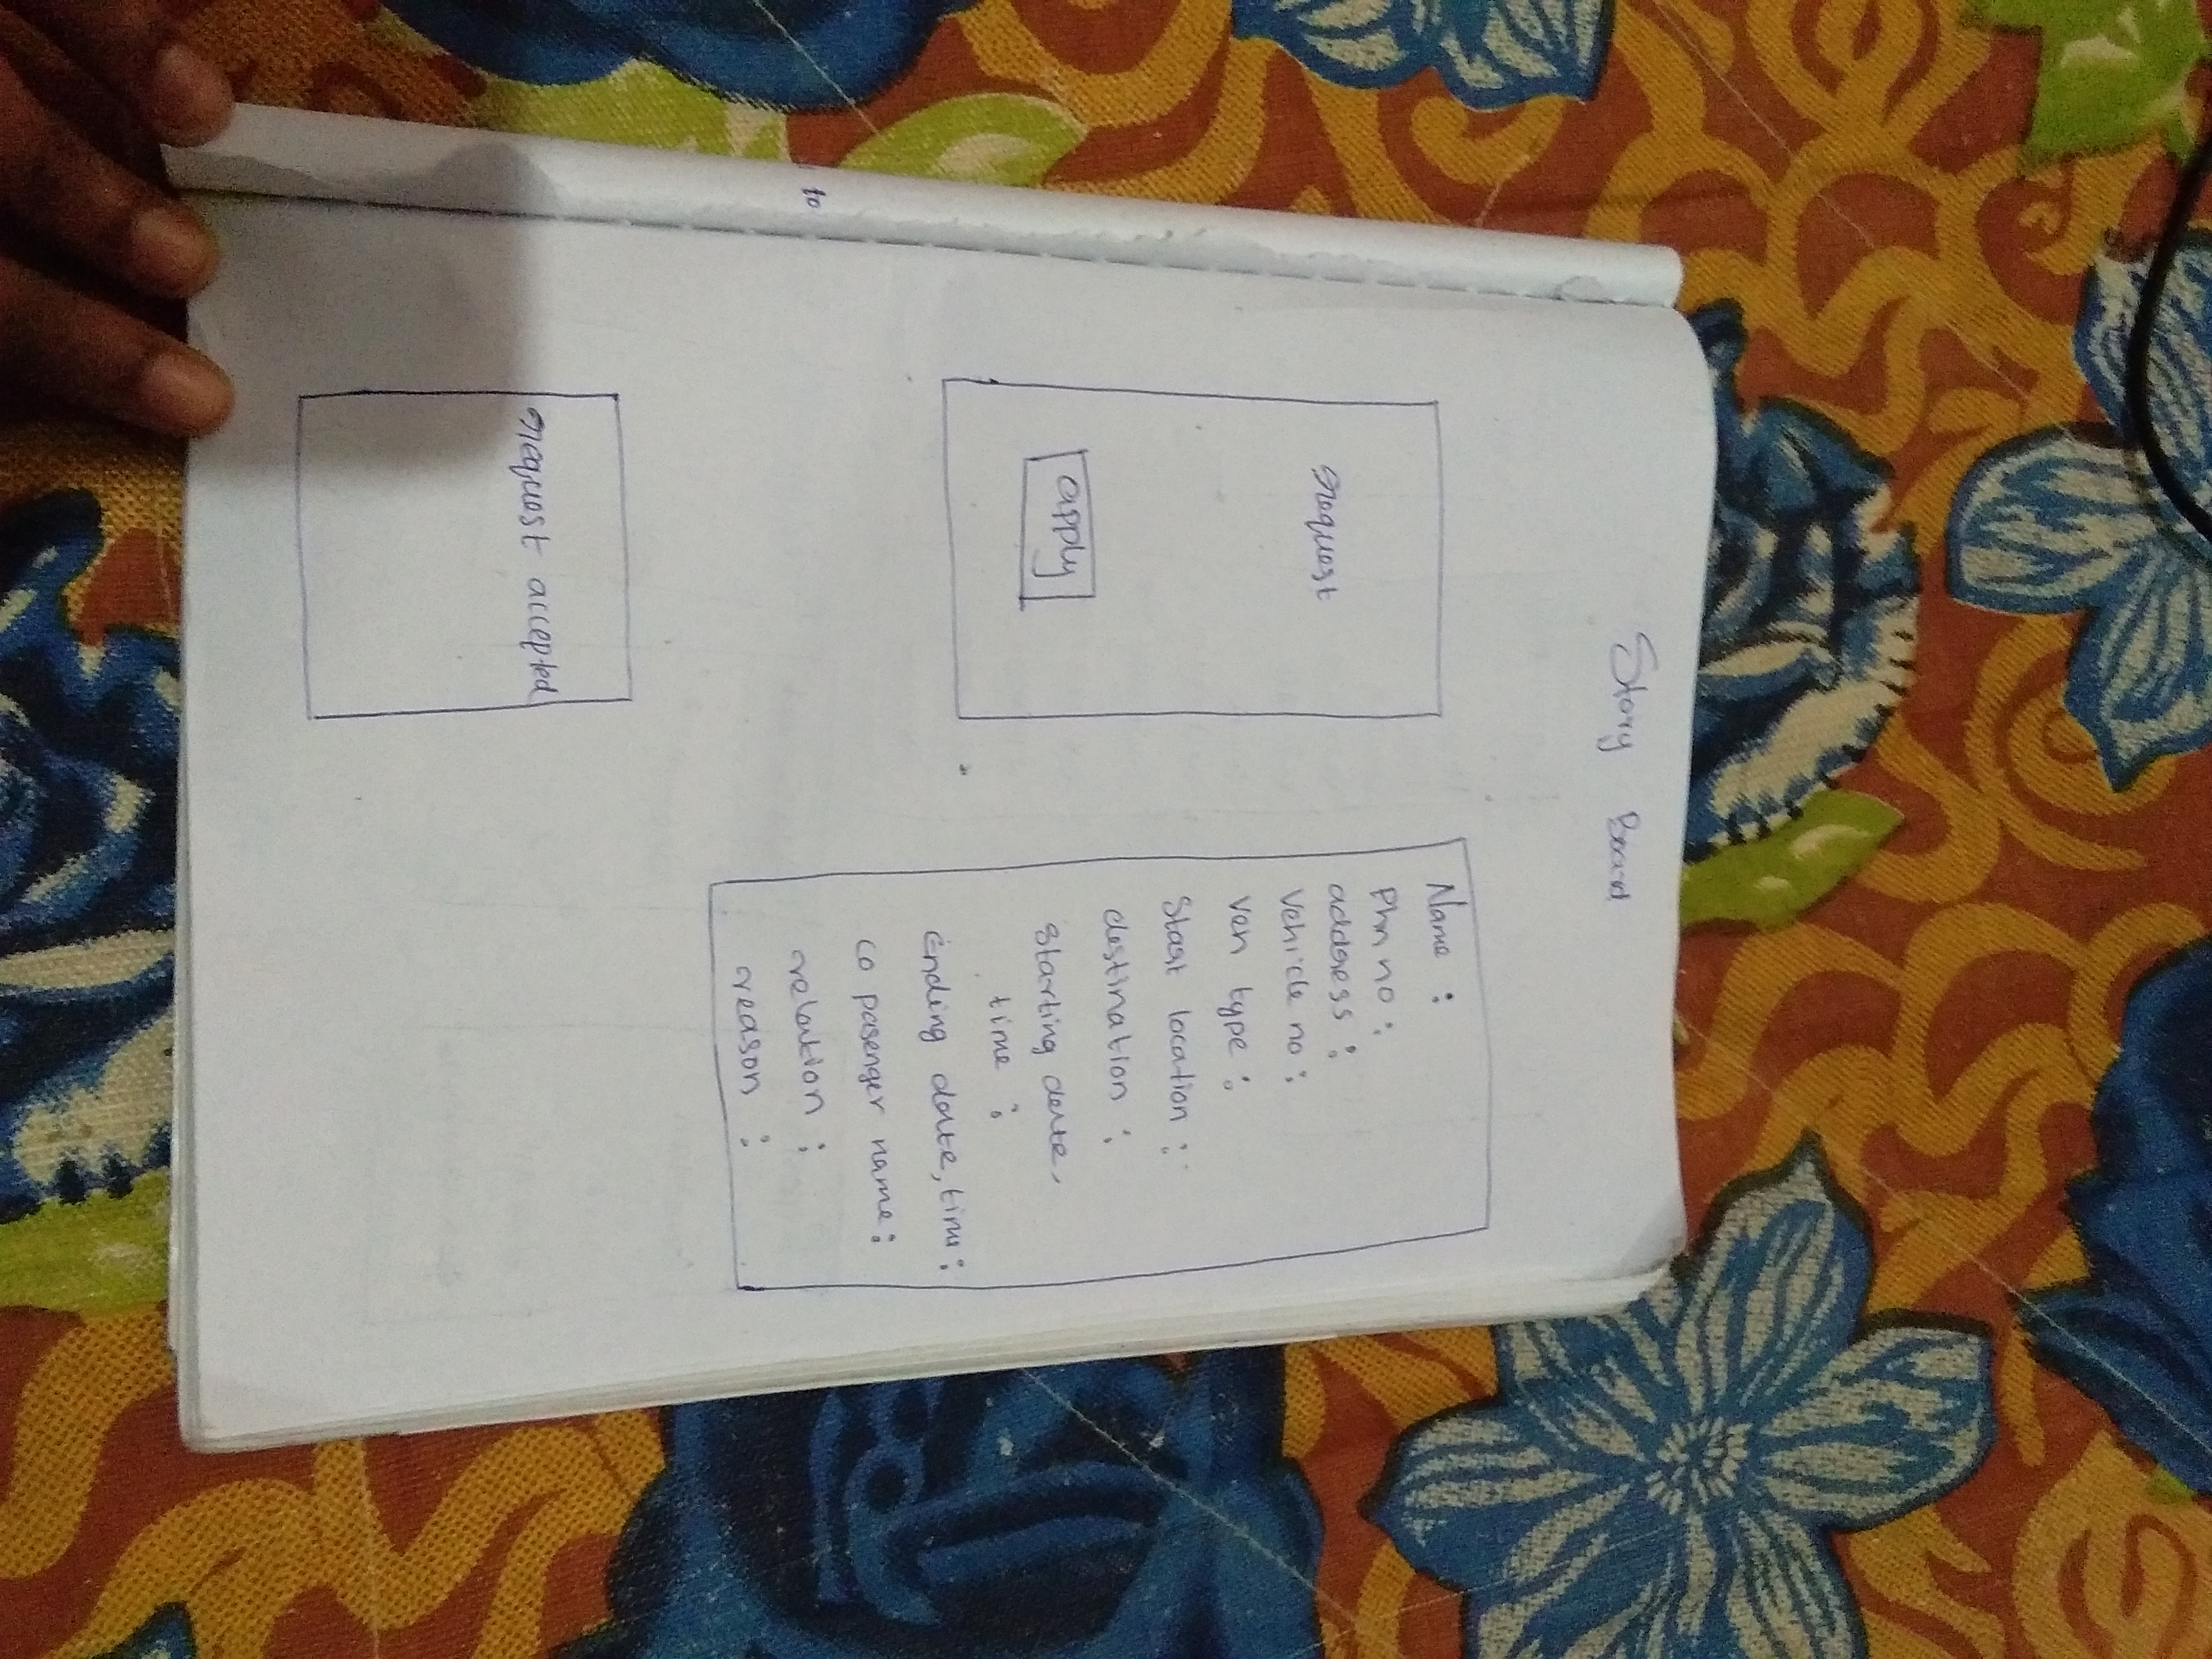 Story Board
request
apply
Name :
Phn no :
address :
Vehicle no :
Veh type :
Start location :
destination :
Starting date,
time :
Ending date, time :
co pasenger name :
relation :
reason :
request accepted
to